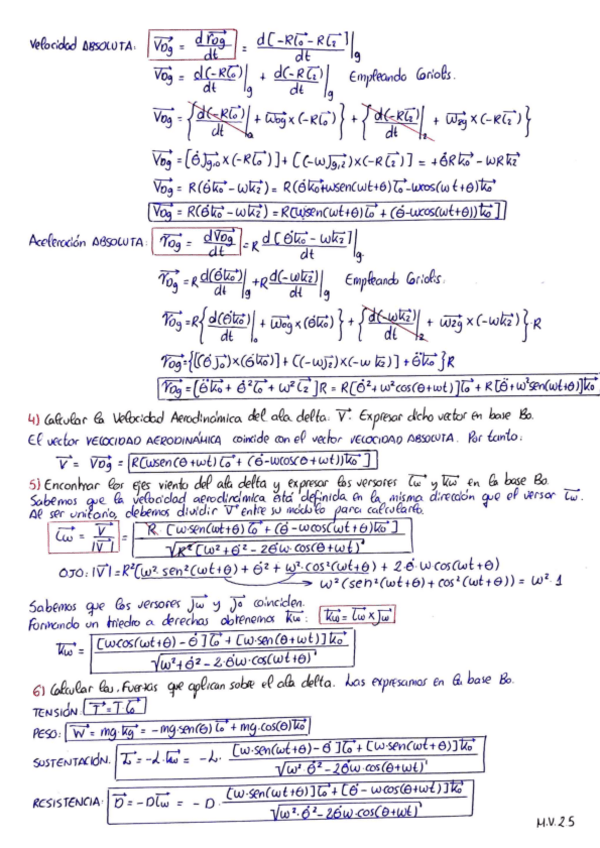 Velocidad ABSOLUTA: V⃗0g = dr⃗0g/dt = d[-Ri⃗0-Ri⃗2]/dt |g
V⃗0g = d(-Ri⃗0)/dt |g + d(-Ri⃗2)/dt |g Empleando Coriolis.
V⃗0g = {d(-Ri⃗0)/dt |0 + ω⃗0g×(-Ri⃗0)} + {d(-Ri⃗2)/dt |2 + ω⃗2g×(-Ri⃗2)}
V⃗0g = [θ̇j⃗g,0×(-Ri⃗0)] + [(-ωj⃗g,2)×(-Ri⃗2)] = +θ̇Rk⃗0 - ωRk⃗2
V⃗0g = R(θ̇k⃗0-ωk⃗2) = R(θ̇k⃗0+ωsen(ωt+θ)i⃗0-ωcos(ωt+θ)k⃗0
V⃗0g = R(θ̇k⃗0-ωk⃗2) = R[ωsen(ωt+θ)i⃗0 + (θ̇-ωcos(ωt+θ))k⃗0]
Aceleración ABSOLUTA: γ⃗0g = dV⃗0g/dt = R d[θ̇k⃗0-ωk⃗2]/dt |g
γ⃗0g = R d(θ̇k⃗0)/dt |g + R d(-ωk⃗2)/dt |g Empleando Coriolis.
γ⃗0g = R{d(θ̇k⃗0)/dt |0 + ω⃗0g×(θ̇k⃗0)} + {d(-ωk⃗2)/dt |2 + ω⃗2g×(-ωk⃗2)}·R
γ⃗0g = {[(θ̇j⃗0)×(θ̇k⃗0)] + [(-ωj⃗)×(-ωk⃗2)] + θ̈k⃗0}R
γ⃗0g = [θ̈k⃗0 + θ̇²i⃗0 + ω²i⃗2]R = R[θ̇²+ω²cos(θ+ωt)]i⃗0 + R[θ̈+ω²sen(θ+ωt)]k⃗0
4) Calcular la Velocidad Aerodinámica del ala delta: V⃗. Expresar dicho vector en base B0.
El vector VELOCIDAD AERODINÁMICA coincide con el vector VELOCIDAD ABSOLUTA. Por tanto:
V⃗ = V⃗0g = R[ωsen(θ+ωt)i⃗0 + (θ̇-ωcos(θ+ωt))k⃗0]
5) Encontrar los ejes viento del ala delta y expresar los versores i⃗w y k⃗w en la base B0.
Sabemos que la velocidad aerodinámica está definida en la misma dirección que el versor i⃗w.
Al ser unitario, debemos dividir V⃗ entre su módulo para calcularlo.
i⃗w = V⃗/|V⃗| = R·[ω·sen(ωt+θ)i⃗0 + (θ̇-ωcos(ωt+θ)k⃗0]/√R²[ω²+θ̇²-2θ̇ω·cos(θ+ωt)
OJO: |V⃗|=R²(ω²sen²(ωt+θ) + θ̇² + ω²·cos²(ωt+θ) + 2·θ̇·ωcos(ωt+θ)
ω²(sen²(ωt+θ)+cos²(ωt+θ)) = ω²·1
Sabemos que los versores j⃗w y j⃗0 coinciden.
Formando un triedro a derechas obtenemos k⃗w: k⃗w=i⃗w×j⃗w
k⃗w = [ωcos(ωt+θ)-θ̇]i⃗0 + [ω·sen(θ+ωt)]k⃗0/√ω²+θ̇²-2·θ̇ω·cos(ωt+θ)
6) Calcular las Fuerzas que aplican sobre el ala delta. Las expresamos en la base B0.
TENSIÓN: T⃗=Ti⃗0
PESO: W⃗ = mg·k⃗g = -mg·sen(θ)i⃗0 + mg·cos(θ)k⃗0
SUSTENTACIÓN: L⃗ = -L·k⃗w = -L· [ω·sen(ωt+θ)-θ̇]i⃗0 + [ω·sen(ωt+θ)]k⃗0/√ω²·θ̇²-2θ̇ω·cos(θ+ωt)
RESISTENCIA: D⃗ = -Di⃗w = -D· [ω·sen(ωt+θ)]i⃗0 + [θ̇-ωcos(ωt+θ)]k⃗0/√ω²·θ̇²-2θ̇ω·cos(θ+ωt)
M.V.25